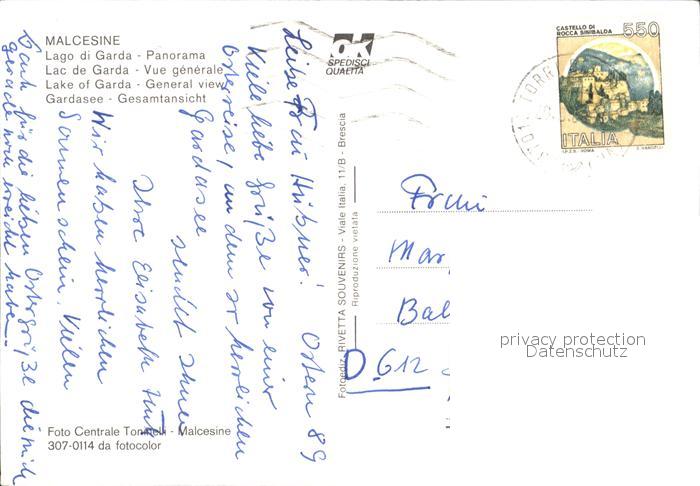 MALCESINE
Lago di Garda - Panorama
Lac de Garda - Vue générale
Lake of Garda - General view
Gardasee - Gesamtansicht
OK
SPEDISCI
QUALITÀ
CASTELLO DI
ROCCA SINIBALDA
550
ITALIA
I.P.Z.S. - ROMA
TORR
Ostern 89
Liebe Frau Hübner!
Viele liebe Grüße von einer
Osterreise, an den so herrlichen
Gardasee sendet Ihnen
Ihre Elisabeth
Wir haben herrlichen
Sonnenschein. Vielen
Dank für die lieben Ostergrüße die mich
gerade noch erreicht haben.
Fotoediz. RIVETTA SOUVENIRS - Viale Italia, 11/B - Brescia
Riproduzione vietata
Frau
Mar
Bal
D 612
privacy protection
Datenschutz
Foto Centrale Tonnelli - Malcesine
307-0114 da fotocolor